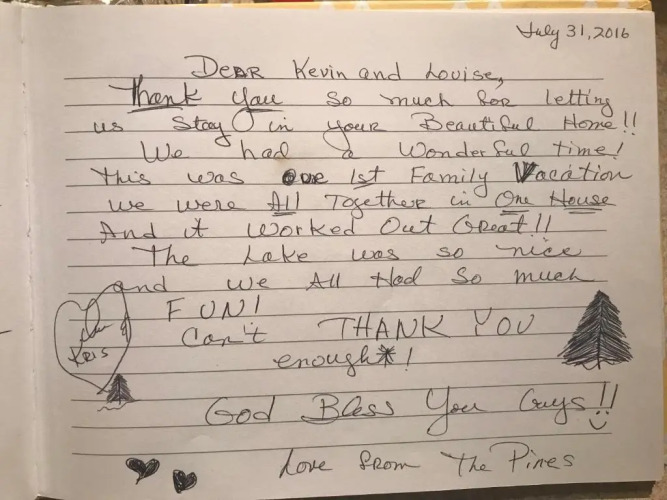 July 31, 2016
Dear Kevin and Louise,
Thank You so much for letting
us Stay in your Beautiful Home!!
We had a Wonderful time!
This was our 1st Family Vacation
we were All Together in One House
And it worked Out Great!!
The Lake was so nice
and we All Had So much
FUN!
Can't THANK YOU
enough*!
Kris
God Bless You Guys!!
Love from The Pines